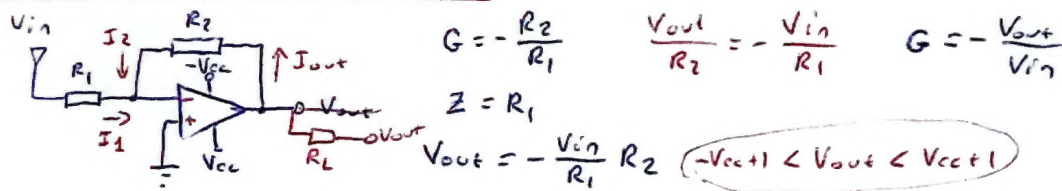 Vin
I2
R2
-Vcc
Iout
R1
I1
-
+
Vcc
Vout
Vout
RL
G = - R2/R1
Vout/R2 = - Vin/R1
G = - Vout/Vin
Z = R1
Vout = - Vin/R1 R2
-Vcc+1 < Vout < Vcc+1